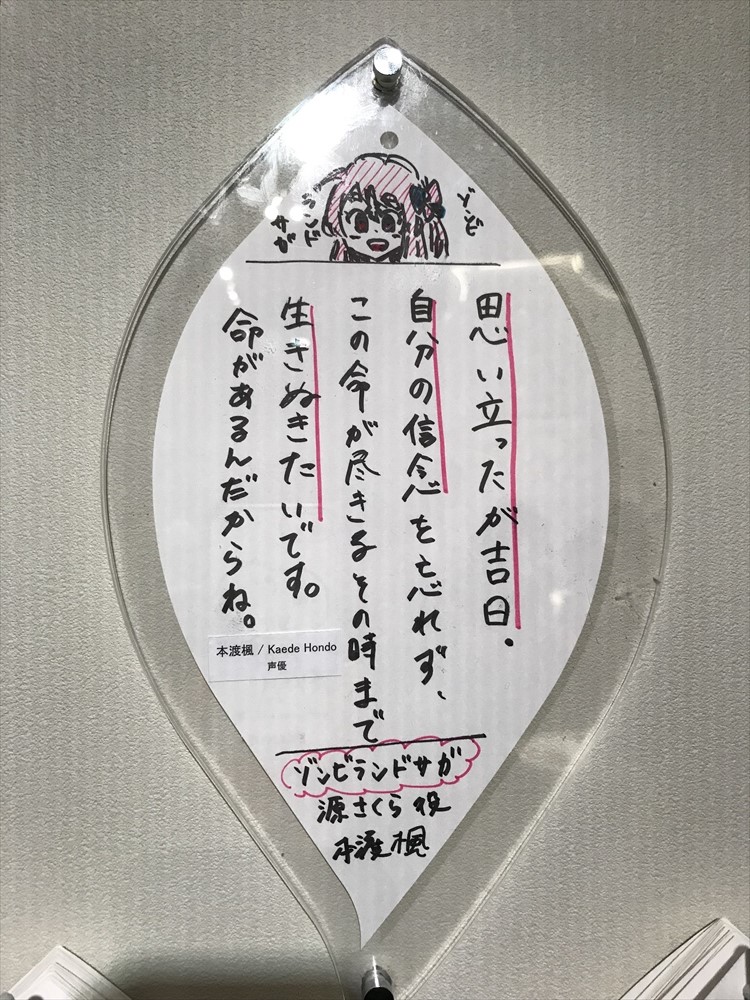 ゾンビ
ランド
サガ
思い立ったが吉日.
自分の信念を忘れず、
この命が尽きるその時まで
生きぬきたいです。
命があるんだからね。
本渡楓 / Kaede Hondo
声優
ゾンビランドサガ
源さくら役
本渡楓